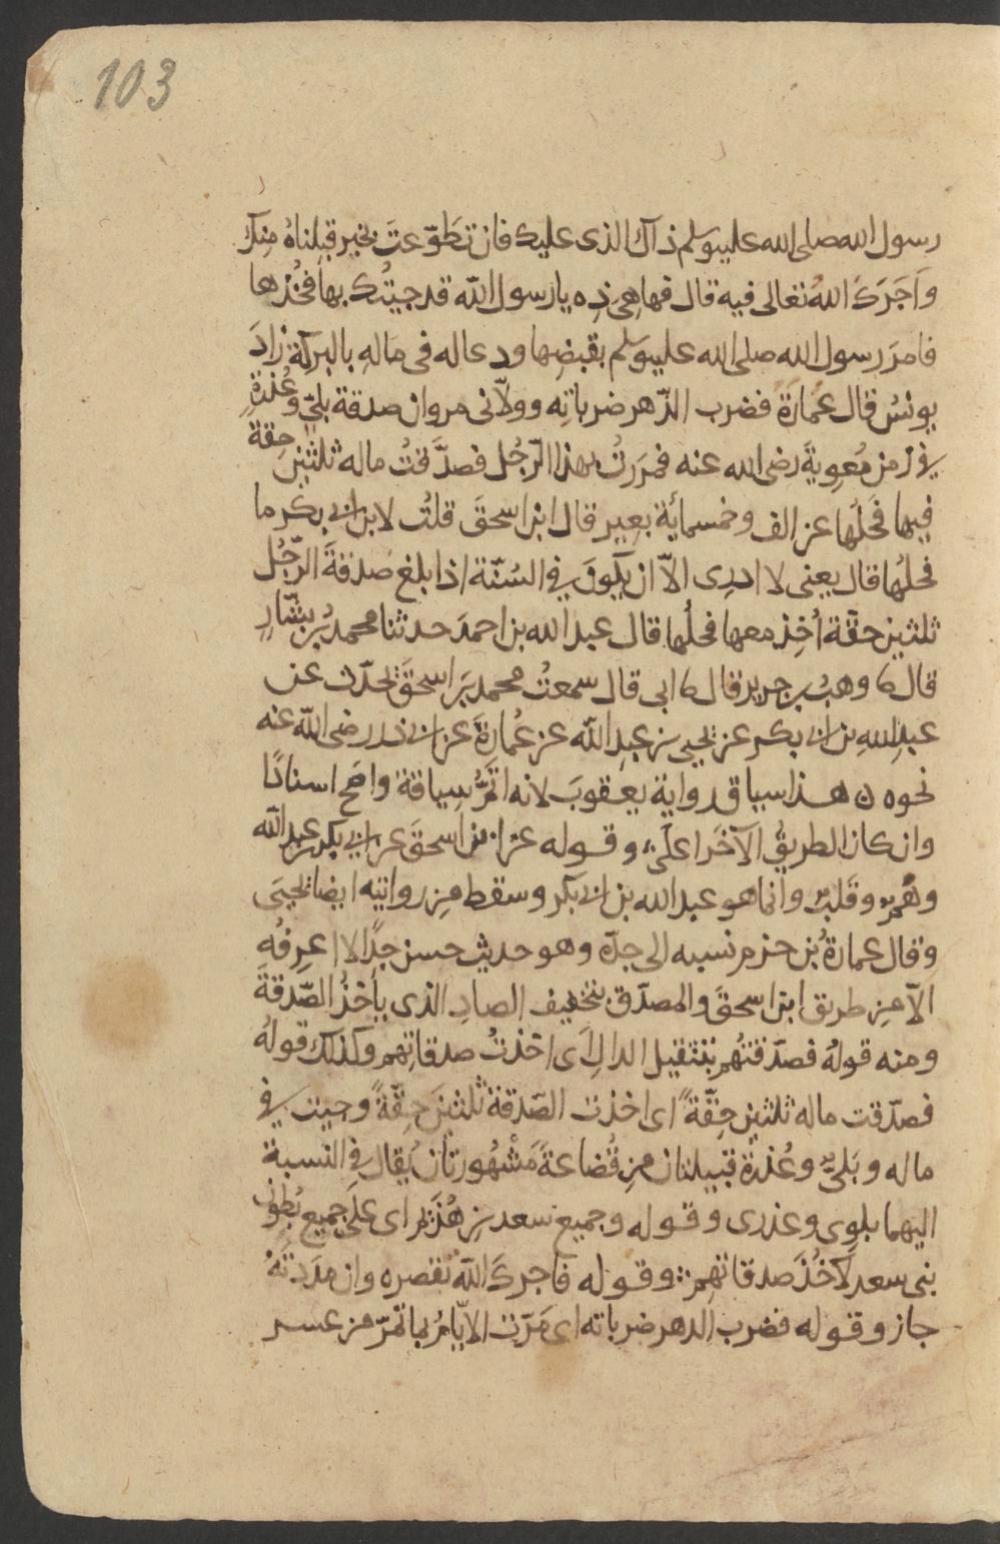 103
رسول الله صلى الله عليه وسلم ذاك الذى عليك فان تطوّعتَ بخير قبلناهُ منك
وآجَرَكَ اللهُ تعالى فيه قال فها هى ذِه يا رسول الله قد جيتُك بها فخُذها
فامرَ رسول الله صلى الله عليه وسلم بقبضِها ودعا له فى مالهِ بالبركة زادَ
يونسُ قال عُمارَةُ فضرب الدّهر ضرباتِه وولّانى مروان صدقة بلىّ وعُذرةٍ
فى زمن مُعوِيةَ رضى الله عنه فمَرَرتُ بهذا الرّجُل فصدَّقتُ ماله ثلثين حِقة
فيها فَحلُها عن الف وخمسمائة بعير قال ابن اسحقَ قلتُ لابن ابى بكر ما
فحلُها قال يعنى لا ادرى الاّ ان يكونَ فى السُنّة اذا بلغ صدقةَ الرّجُل
ثلثين حقّة أُخِذ معها فحلُها قال عبد الله بن احمدَ حدثنا محمدُ بن بشّارٍ
قال نا وهبُ بن جرير قال نا ابى قال سمعتُ محمدَ بنَ اسحقَ يحدّث عن
عبدِ اللهِ بن ابى بكر عن يحيى بن عبدِ الله عن عُمارَةَ عن ابى ذر رضى الله عنه
نحوه ن هذا سياق رواية يعقوبَ لانه اتَمُّ سِياقة واصَح اسنادًا
وان كان الطريقُ الآخَر اعلَى وقوله عن ابن اسحقَ عن ابى بكر عن عبد الله
وهمٌ وقَلبٌ وانما هو عبد الله بن ابى بكر وسقط مِن روايته ايضا يحيَى
وقال عمارةُ بن حزم نسبه الى جدّه وهو حديث حسن جدًا لا اعرِفُه
الاّ مِن طريق ابن اسحقَ والمصدّق بتخفيف الصادِ الذى يأخُذُ الصّدقةَ
ومنه قولُه فصدّقتُهم بتثقيل الدالِ اى اخذتُ صدقاتِهم وكذلك قولُه
فصدّقت ماله ثلثين حِقّةً اى اخذت الصّدقة ثلثينَ حِقّةً وجبت فى
ماله وبَلىٌّ وعُذرةُ قبيلتان مِن قُضاعةَ مَشْهُورتان يُقال فى النسبة
اليهما بلوِى وعذرى وقوله وجميع سعد بن هُذَيم اى على جميع بُطون
بنى سعد لآخُذَ صدقاتهم وقوله فآجركَ اللهُ تقصره وان مدَدتَهُ
جاز وقوله فضرب الدهر ضرباته اى مَرّت الايّامُ بما تمرّ من عسر